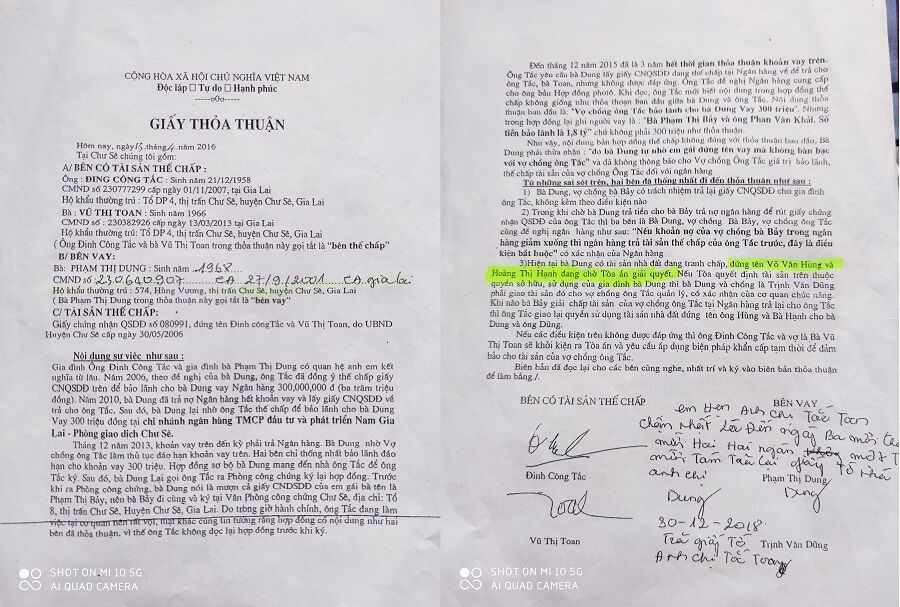 CỘNG HÒA XÃ HỘI CHỦ NGHĨA VIỆT NAM
Độc lập □ Tự do □ Hạnh phúc
-----o0o-----
GIẤY THỎA THUẬN
Hôm nay, ngày 15 tháng 4 năm 2016
Tại Chư Sê chúng tôi gồm:
A/ BÊN CÓ TÀI SẢN THẾ CHẤP :
Ông : ĐINH CÔNG TẮC : Sinh năm 21/12/1958
CMND số 230777299 cấp ngày 01/11/2007, tại Gia Lai
Hộ khẩu thường trú : Tổ DP 4, thị trấn Chư Sê, huyện Chư Sê, Gia Lai
Bà : VŨ THỊ TOAN : Sinh năm 1966
CMND số : 230382926 cấp ngày 13/03/2013 tại Gia Lai
Hộ khẩu thường trú : Tổ DP 4, thị trấn Chư Sê, huyện Chư Sê, Gia Lai
( Ông Đinh Công Tắc và bà Vũ Thị Toan trong thỏa thuận này gọi tắt là “bên thế chấp”
B/ BÊN VAY:
Bà: PHẠM THỊ DUNG : Sinh năm 1968
CMND số 230640907 CA 27/9/2001 CA gia lai
Hộ khẩu thường trú : 574, Hùng Vương, thị trấn Chư Sê, huyện Chư Sê, Gia Lai.
( Bà Phạm Thị Dung trong thỏa thuận này gọi tắt là “bên vay”
C/ TÀI SẢN THẾ CHẤP:
Giấy chứng nhận QSDĐ số 080991, đứng tên Đinh côngTắc và Vũ Thị Toan, do UBND
Huyện Chư Sê cấp ngày 30/05/2006
Nội dung sự việc như sau :
Gia đình Ông Đinh Công Tắc và gia đình bà Phạm Thị Dung có quan hệ anh em kết
nghĩa từ lâu. Năm 2006, theo đề nghị của bà Dung, ông Tắc đã đồng ý thế chấp giấy
CNQSDĐ trên để bảo lãnh cho bà Dung vay Ngân hàng 300,000,000 đ (ba trăm triệu
đồng). Năm 2010, Bà Dung đã trả nợ Ngân hàng hết khoản vay và lấy giấy CNQSDĐ về
trả cho ông Tắc. Sau đó, bà Dung lại nhờ ông Tắc thế chấp để bảo lãnh cho bà Dung
Vay 300 triệu đồng tại chi nhánh ngân hàng TMCP đầu tư và phát triển Nam Gia
Lai - Phòng giao dịch Chư Sê.
Tháng 12 năm 2013, khoản vay trên đến kỳ phải trả Ngân hàng. Bà Dung nhờ Vợ
chồng ông Tắc làm thủ tục đáo hạn khoản vay trên. Hai bên chỉ thống nhất bảo lãnh đáo
hạn cho khoản vay 300 triệu. Hợp đồng sơ bộ bà Dung mang đến nhà ông Tắc để ông
Tắc ký. Sau đó, bà Dung Lại gọi ông Tắc ra Phòng công chứng ký lại hợp đồng. Trước
khi ra Phòng công chứng, bà Dung nói là mượn cả giấy CNDSDĐ của em gái bà tên là
Phạm Thị Bảy, nên bà Bảy đi cùng và ký tại Văn Phòng công chứng Chư Sê, địa chỉ: Tổ
8, thị trấn Chư Sê, Huyện Chư Sê, Gia Lai. Do trong giờ hành chính, ông Tắc đang làm
việc tại cơ quan nên rất vội, mặt khác cũng tin tưởng rằng hợp đồng có nội dung như hai
bên đã thỏa thuận, vì thế ông Tắc không đọc lại hợp đồng trước khi ký.
SHOT ON MI 10 5G
AI QUAD CAMERA
Đến tháng 12 năm 2015 đã là 3 năm hết thời gian thỏa thuận khoản vay trên.
Ông Tắc yêu cầu bà Dung lấy giấy CNQSDĐ đang thế chấp tại Ngân hàng về để trả cho
ông Tắc, bà Toan, nhưng không được đáp ứng. Ông Tắc đề nghị Ngân hàng cung cấp
cho ông bản Hợp đồng photô. Khi đọc, ông Tắc mới biết nội dung trong hợp đồng thế
chấp không giống như thỏa thoạn ban đầu giữa bà Dung và ông Tắc. Nội dung thỏa
thuận ban đầu là: "Vợ chồng ông Tắc bảo lãnh cho bà Dung Vay 300 triệu". Nhưng
trong hợp đồng lại ghi người vay là : "Bà Phạm Thị Bảy và ông Phan Văn Khải. Số
tiền bảo lãnh là 1,8 tỷ" chứ không phải 300 triệu như thỏa thuận.
Như vậy, nội dung bản hợp đồng thế chấp không đúng với thỏa thuận ban đầu, Bà
Dung phải thừa nhận : "do bà Dung tự nhờ em gái đứng tên vay mà không bàn bạc
với vợ chồng ông Tắc" và đã không thông báo cho Vợ chồng Ông Tắc giá trị bảo lãnh,
thế chấp tài sản của vợ chồng Ông Tắc đối với ngân hàng.
Từ những sai sót trên, hai bên đã thống nhất đi đến thỏa thuận như sau :
1) Bà Dung, vợ chồng bà Bảy có trách nhiệm trả lại giấy CNQSDĐ cho gia đình
ông Tắc, không kèm theo điều kiện nào
2) Trong khi chờ bà Dung trả tiền cho bà Bảy trả nợ ngân hàng để rút giấy chứng
nhận QSDĐ của ông Tắc thì ba bên là Bà Dung, vợ chồng Bà Bảy, vợ chồng ông Tắc
cùng đề nghị ngân hàng như sau: "Nếu khoản nợ của vợ chồng bà Bảy trong ngân
hàng giảm xuống thì ngân hàng trả tài sản thế chấp của ông Tắc trước, đây là điều
kiện bắt buộc" có xác nhận của Ngân hàng
3)Hiện tại bà Dung có tài sản nhà đất đang tranh chấp, đứng tên Võ Văn Hùng và
Hoàng Thị Hạnh đang chờ Tòa án giải quyết. Nếu Tòa quyết định tài sản trên thuộc
quyền sở hữu, sử dụng của gia đình bà Dung thì bà Dung và chồng là Trịnh Văn Dũng
phải giao tài sản đó cho vợ chồng ông Tắc quản lý, có xác nhận của cơ quan chức năng.
Khi nào bà Bảy giải chấp tài sản của vợ chồng ông Tắc tại Ngân hàng trả lại cho ông Tắc
thì ông Tắc giao lại quyền sử dụng tài sản nhà đất đứng tên ông Hùng và Bà Hạnh cho bà
Dung và ông Dũng.
Nếu các điều kiện trên không được đáp ứng thì ông Đinh Công Tắc và vợ là Bà Vũ
Thị Toan sẽ khởi kiện ra Tòa án và yêu cầu áp dụng biện pháp khẩn cấp tạm thời để đảm
bảo cho tài sản của vợ chồng ông Tắc.
Biên bản đã đọc lại cho các bên cùng nghe, nhất trí và ký vào biên bản thỏa thuận
để làm bằng./.
BÊN CÓ TÀI SẢN THẾ CHẤP
BÊN VAY
em Hẹn Anh Chị Tắc Toan
Chậm Nhất Là Đến ngày Ba mươi
mười Hai Hai ngàn không một
mười Tám Trả Lại giấy Tờ Nhà
anh chị
Đinh Công Tắc
Phạm Thị Dung
Dung
Dung
30-12-2018
Trả giấy Tờ
Anh chị Tắc Toan
Vũ Thị Toan
Trịnh Văn Dũng
SHOT ON MI 10 5G
AI QUAD CAMERA